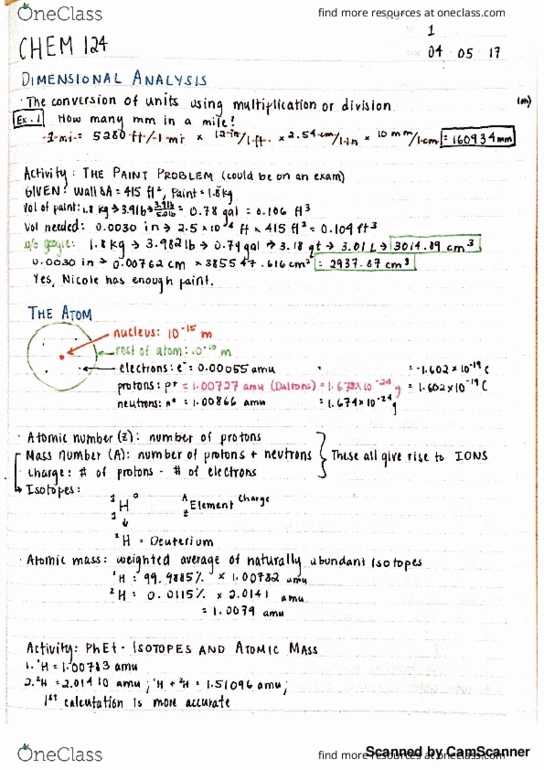 OneClass
find more resources at oneclass.com
CHEM 124
1
04 05 17
DIMENSIONAL ANALYSIS
· The conversion of units using multiplication or division
Ex. 1 How many mm in a mile?
1 mi = 5280 ft/1 mi × 12 in/1 ft × 2.54 cm/1 in × 10 mm/1 cm = 160934 mm
Activity: THE PAINT PROBLEM (could be on an exam)
GIVEN: Wall SA = 415 ft², Paint = 1.8 kg
Vol of paint: 1.8 kg → 3.9 lb → = 0.78 gal = 0.106 ft³
Vol needed: 0.0030 in → 2.5 × 10⁻⁴ ft × 415 ft² = 0.104 ft³
w/o google: 1.8 kg → 3.982 lb → 0.79 gal → 3.18 qt → 3.01 L → 3014.89 cm³
0.0030 in → 0.00762 cm × 385547.616 cm² = 2937.87 cm³
Yes, Nicole has enough paint.
THE ATOM
nucleus: 10⁻¹⁵ m
rest of atom: m
electrons: e⁻ = 0.00055 amu = -1.602 × 10⁻¹⁹ C
protons: p⁺ = 1.00727 amu (Daltons) = 1.673 × 10⁻²⁴ g = 1.602 × 10⁻¹⁹ C
neutrons: n° = 1.00866 amu = 1.674 × 10⁻²⁴ g
· Atomic number (Z): number of protons
Mass number (A): number of protons + neutrons } These all give rise to IONS
Charge: # of protons - # of electrons
Isotopes:
¹₁H⁰ ᴬ_Z Element ᶜʰᵃʳᵍᵉ
²H = Deuterium
· Atomic mass: weighted average of naturally abundant isotopes
¹H = 99.9885% × 1.00782 amu
²H = 0.0115% × 2.0141 amu
= 1.0079 amu
Activity: PhET - ISOTOPES AND ATOMIC MASS
1. ¹H = 1.00783 amu
2. ²H = 2.01410 amu; ¹H + ²H = 1.51096 amu;
1st calculation is more accurate
OneClass
find more resources at oneclass.com
Scanned by CamScanner